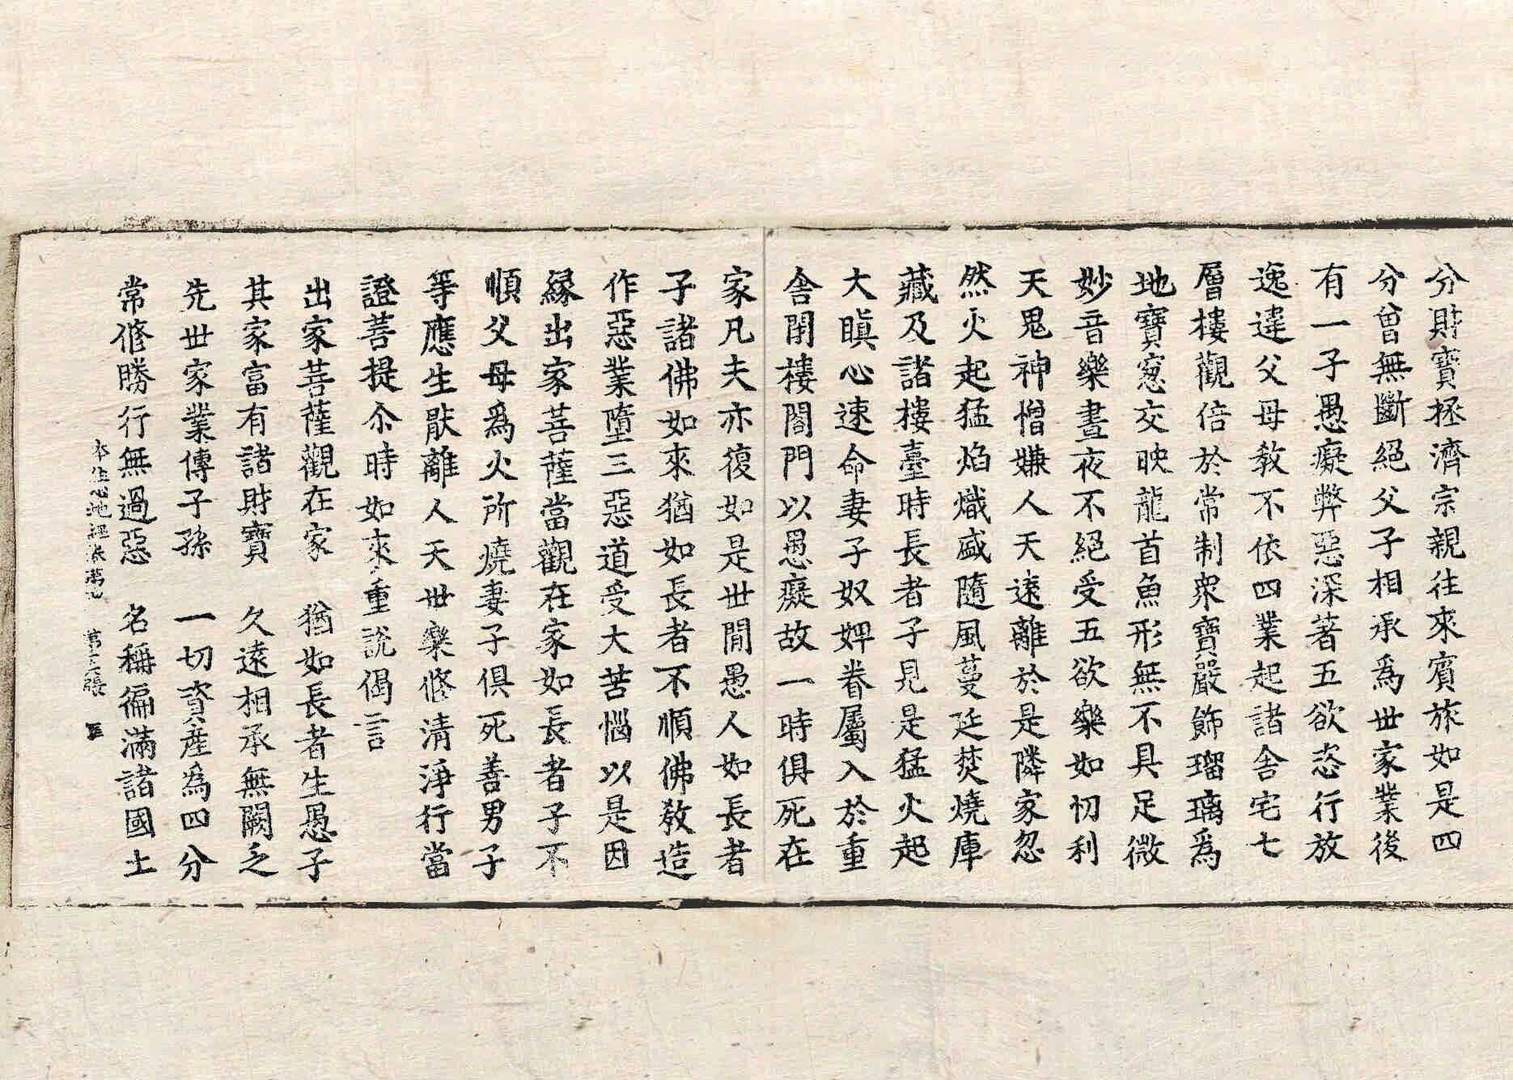 分財寶拯濟宗親往來賓旅如是四
分曾無斷絕父子相承爲世家業後
有一子愚癡弊惡深著五欲恣行放
逸違父母教不依四業起諸舍宅七
層樓觀倍於常制衆寶嚴飾瑠璃爲
地寶窓交映龍首魚形無不具足微
妙音樂晝夜不絕受五欲樂如忉利
天鬼神憎嫌人天遠離於是隣家忽
然火起猛焰熾盛隨風蔓延焚燒庫
藏及諸樓臺時長者子見是猛火起
大瞋心速命妻子奴婢眷屬入於重
舍閉樓閣門以愚癡故一時俱死在
家凡夫亦復如是世間愚人如長者
子諸佛如來猶如長者不順佛教造
作惡業墮三惡道受大苦惱以是因
緣出家菩薩當觀在家如長者子不
順父母爲火所燒妻子俱死善男子
等應生厭離人天世樂修清淨行當
證菩提尒時如來重說偈言
出家菩薩觀在家　猶如長者生愚子
其家富有諸財寶　久遠相承無闕乏
先世家業傳子孫　一切資産爲四分
常修勝行無過惡　名稱徧滿諸國土
本生心地經